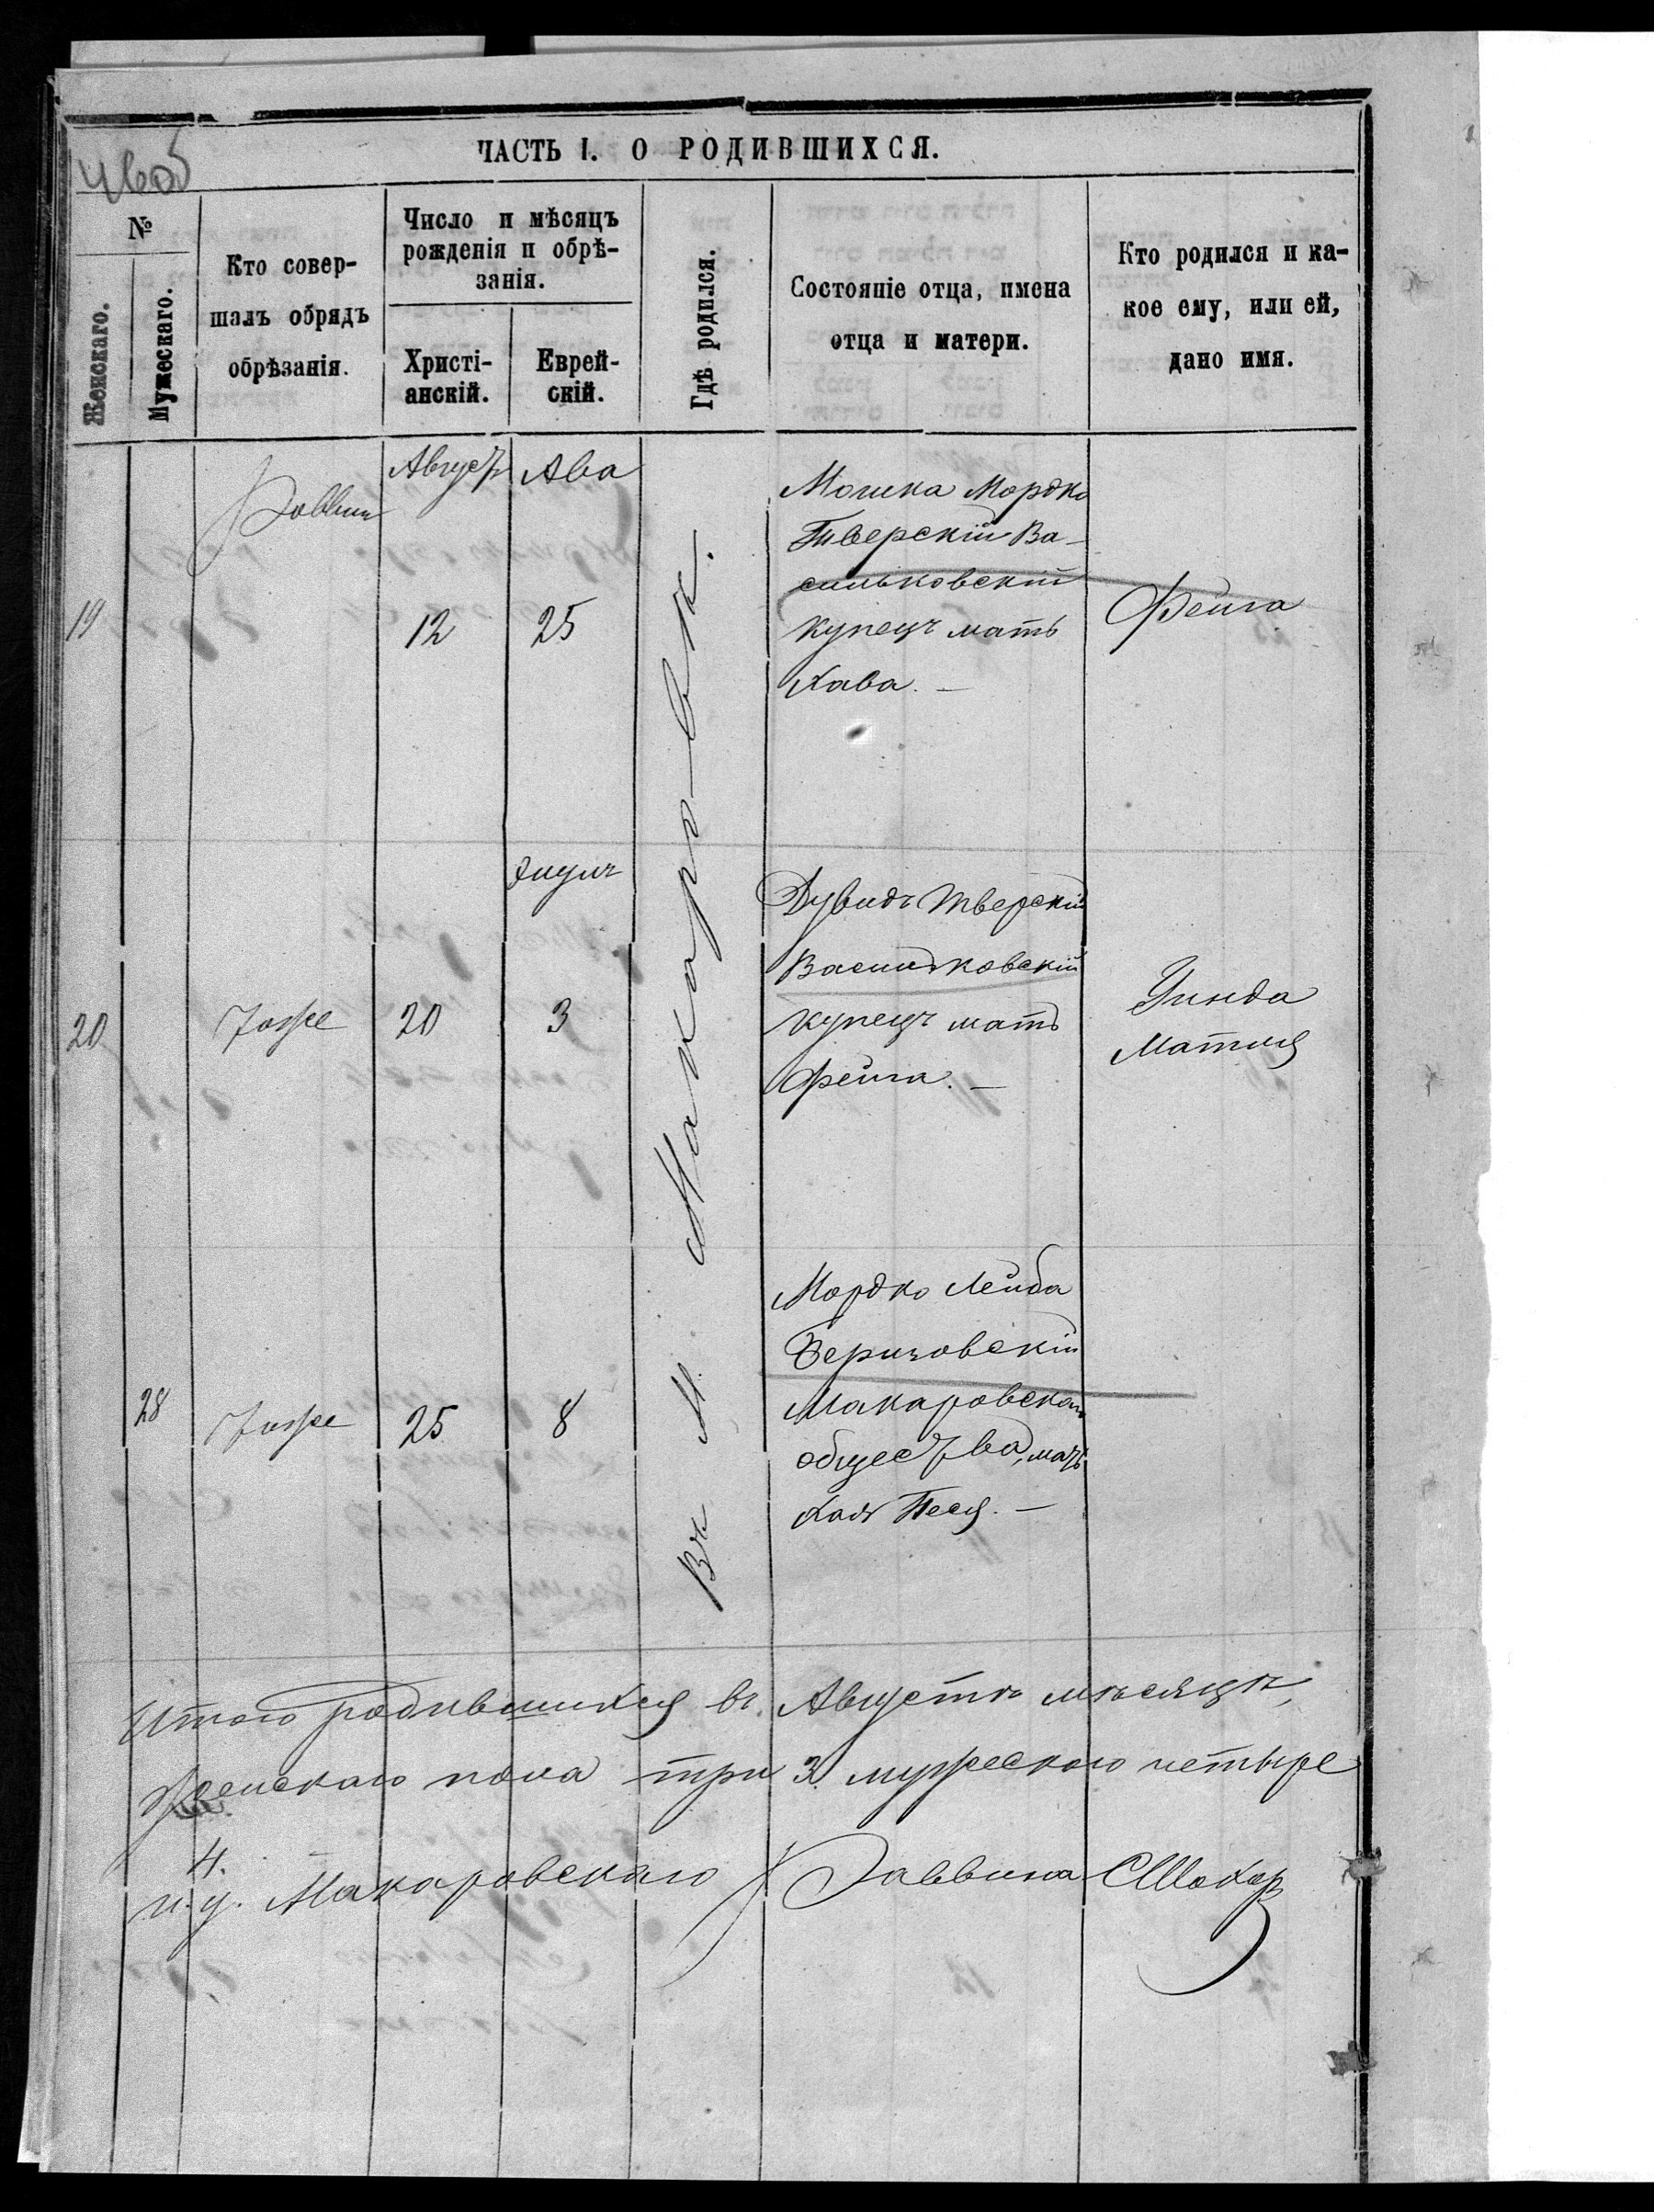 ЧАСТЬ I. О РОДИВШИХСЯ.
№
Женскаго.
Мужескаго.
Кто совер-
шалъ обрядъ
обрѣзанія.
Число и мѣсяцъ
рожденія и обрѣ-
занія.
Христі-
анскій.
Еврей-
скій.
Гдѣ родился.
Состояніе отца, имена
отца и матери.
Кто родился и ка-
кое ему, или ей,
дано имя.
19
Раввин
Август
12
Ава
25
Въ М. Макаровѣ.
Мошка Мордко
Тверскій Ва-
сильковскій
купецъ мать
Хава. —
Фейга
20
Тоже
20
Элулъ
3
Дувидъ Тверскій
Васильковскій
купецъ мать
Фейга. —
Матля
28
Тоже
25
8
Мордко Лейба
Макаровскаго
общества, мать
Песя. —
Итого родившихся въ Августѣ мѣсяцѣ,
женскаго пола три 3 мужескаго четыре
4.
и. у. Макаровскаго Раввина